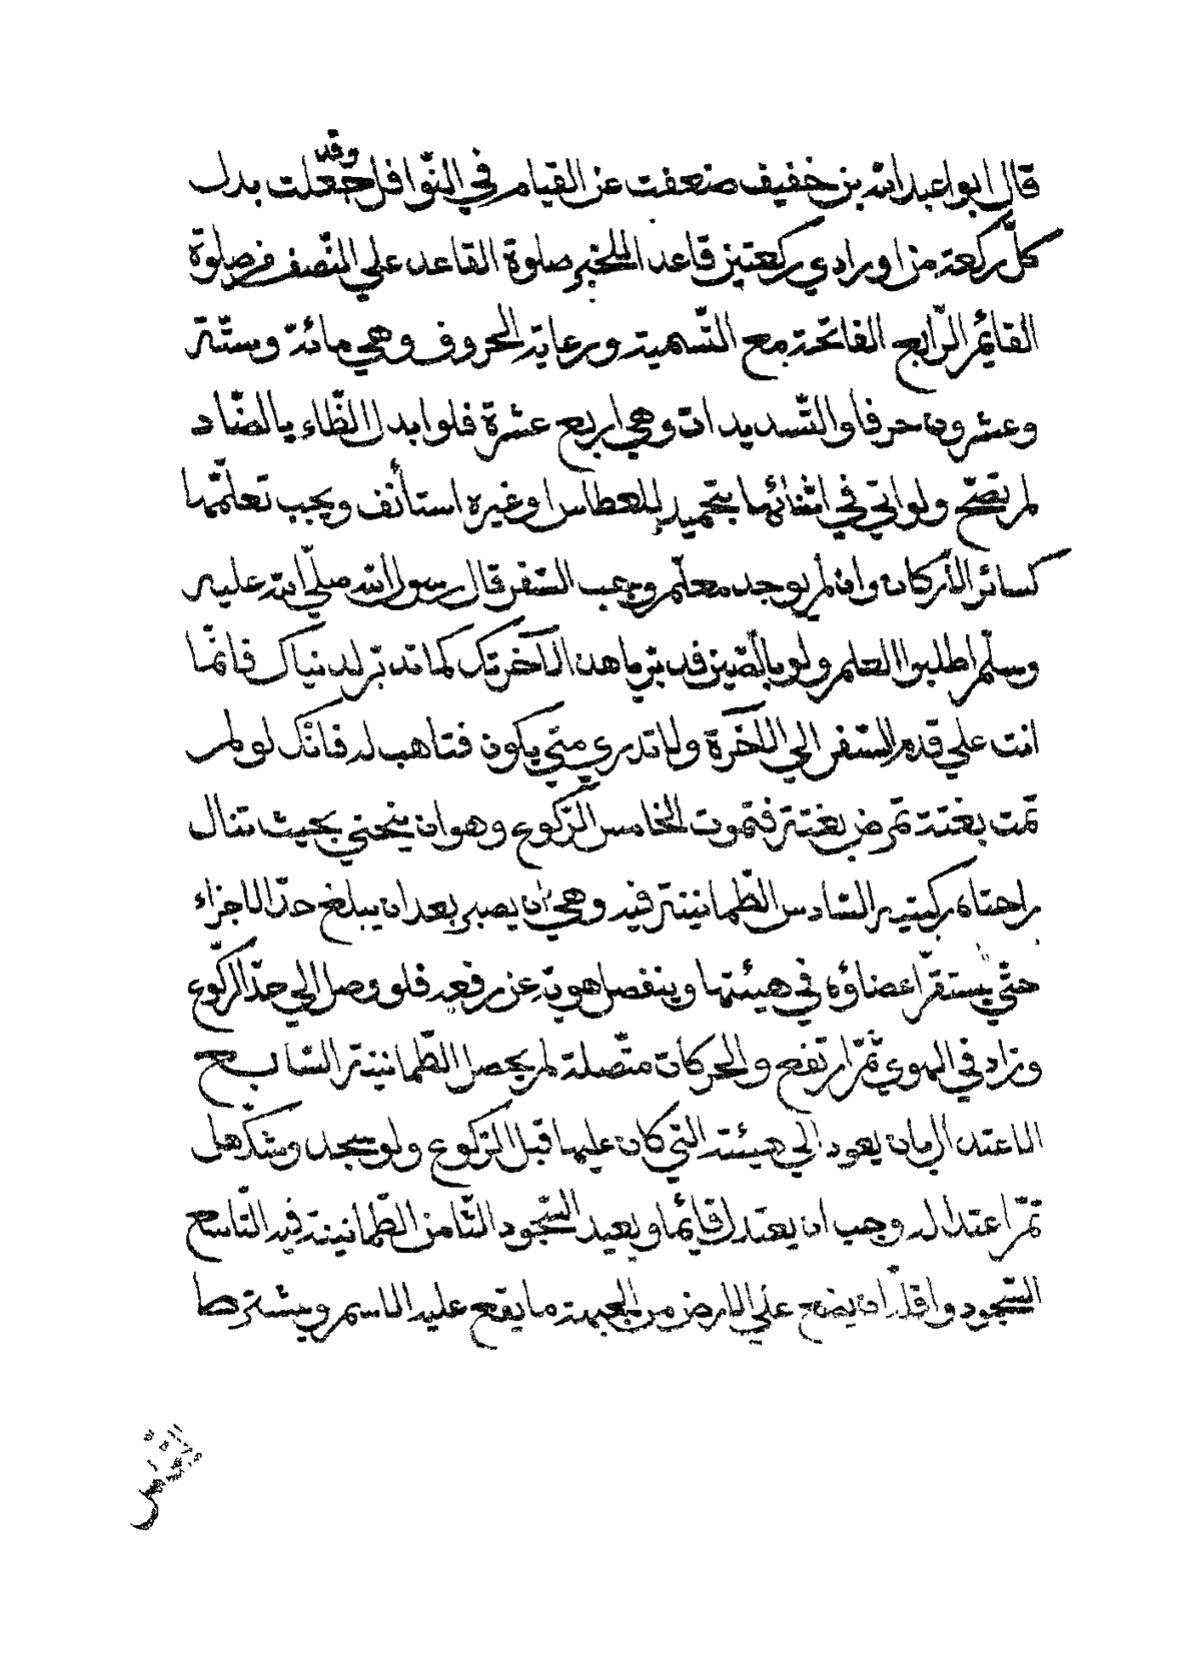 قال ابو عبد الله بن خفيف ضعفت عن القيام في النّوافل وقد جعلت بدل
كلّ ركعة من اورادي ركعتين قاعدا للخبر صلوة القاعد علي النّصف من صلوة
القائم الرّابع الفاتحة مع التّسمية ورعاية الحروف وهي مائة وستّة
وعشرون حرفا والتّشديدات وهي اربع عشرة فلو ابدل الظّاء بالضّاد
لم تصحّ ولو اتي في اثنائها بتحميد للعطاس او غيره استأنف ويجب تعلّمها
كسائر الأركان وان لم يوجد معلّم وجب السّفر قال رسول الله صلّي الله عليه
وسلّم اطلبوا العلم ولو بالصّين فدبّر ما هذا لآخرتك كما تدبّر لدنياك فانّما
انت علي قدم السّفر الي الآخرة ولا تدري متي يكون فتاهب له فانّك لو لم
تمت بغتة تمرض بغتة فتموت الخامس الرّكوع وهو ان ينحني بحيث تنال
راحتاه ركبتيه السّادس الطّمانينة فيه وهي ان يصبر بعد ان يبلغ حدّ الاجزاء
حتّي يستقرّ اعضاؤه في هيئتها وينفصل هويّه عن رفعه فلو وصل الي حدّ الرّكوع
وزاد في الهوي ثمّ ارتفع والحركات متّصلة لم يحصل الطّمانينة السّابع
الاعتدال بان يعود الي هيئته التي كان عليها قبل الرّكوع ولو سجد وشكّ هل
تمّ اعتداله وجب ان يعتدل قائما ويعيد السّجود الثّامن الطّمانينة فيه التّاسع
السّجود واقلّه ان يضع علي الارض من الجبهة ما يقع عليه الاسم ويشترط